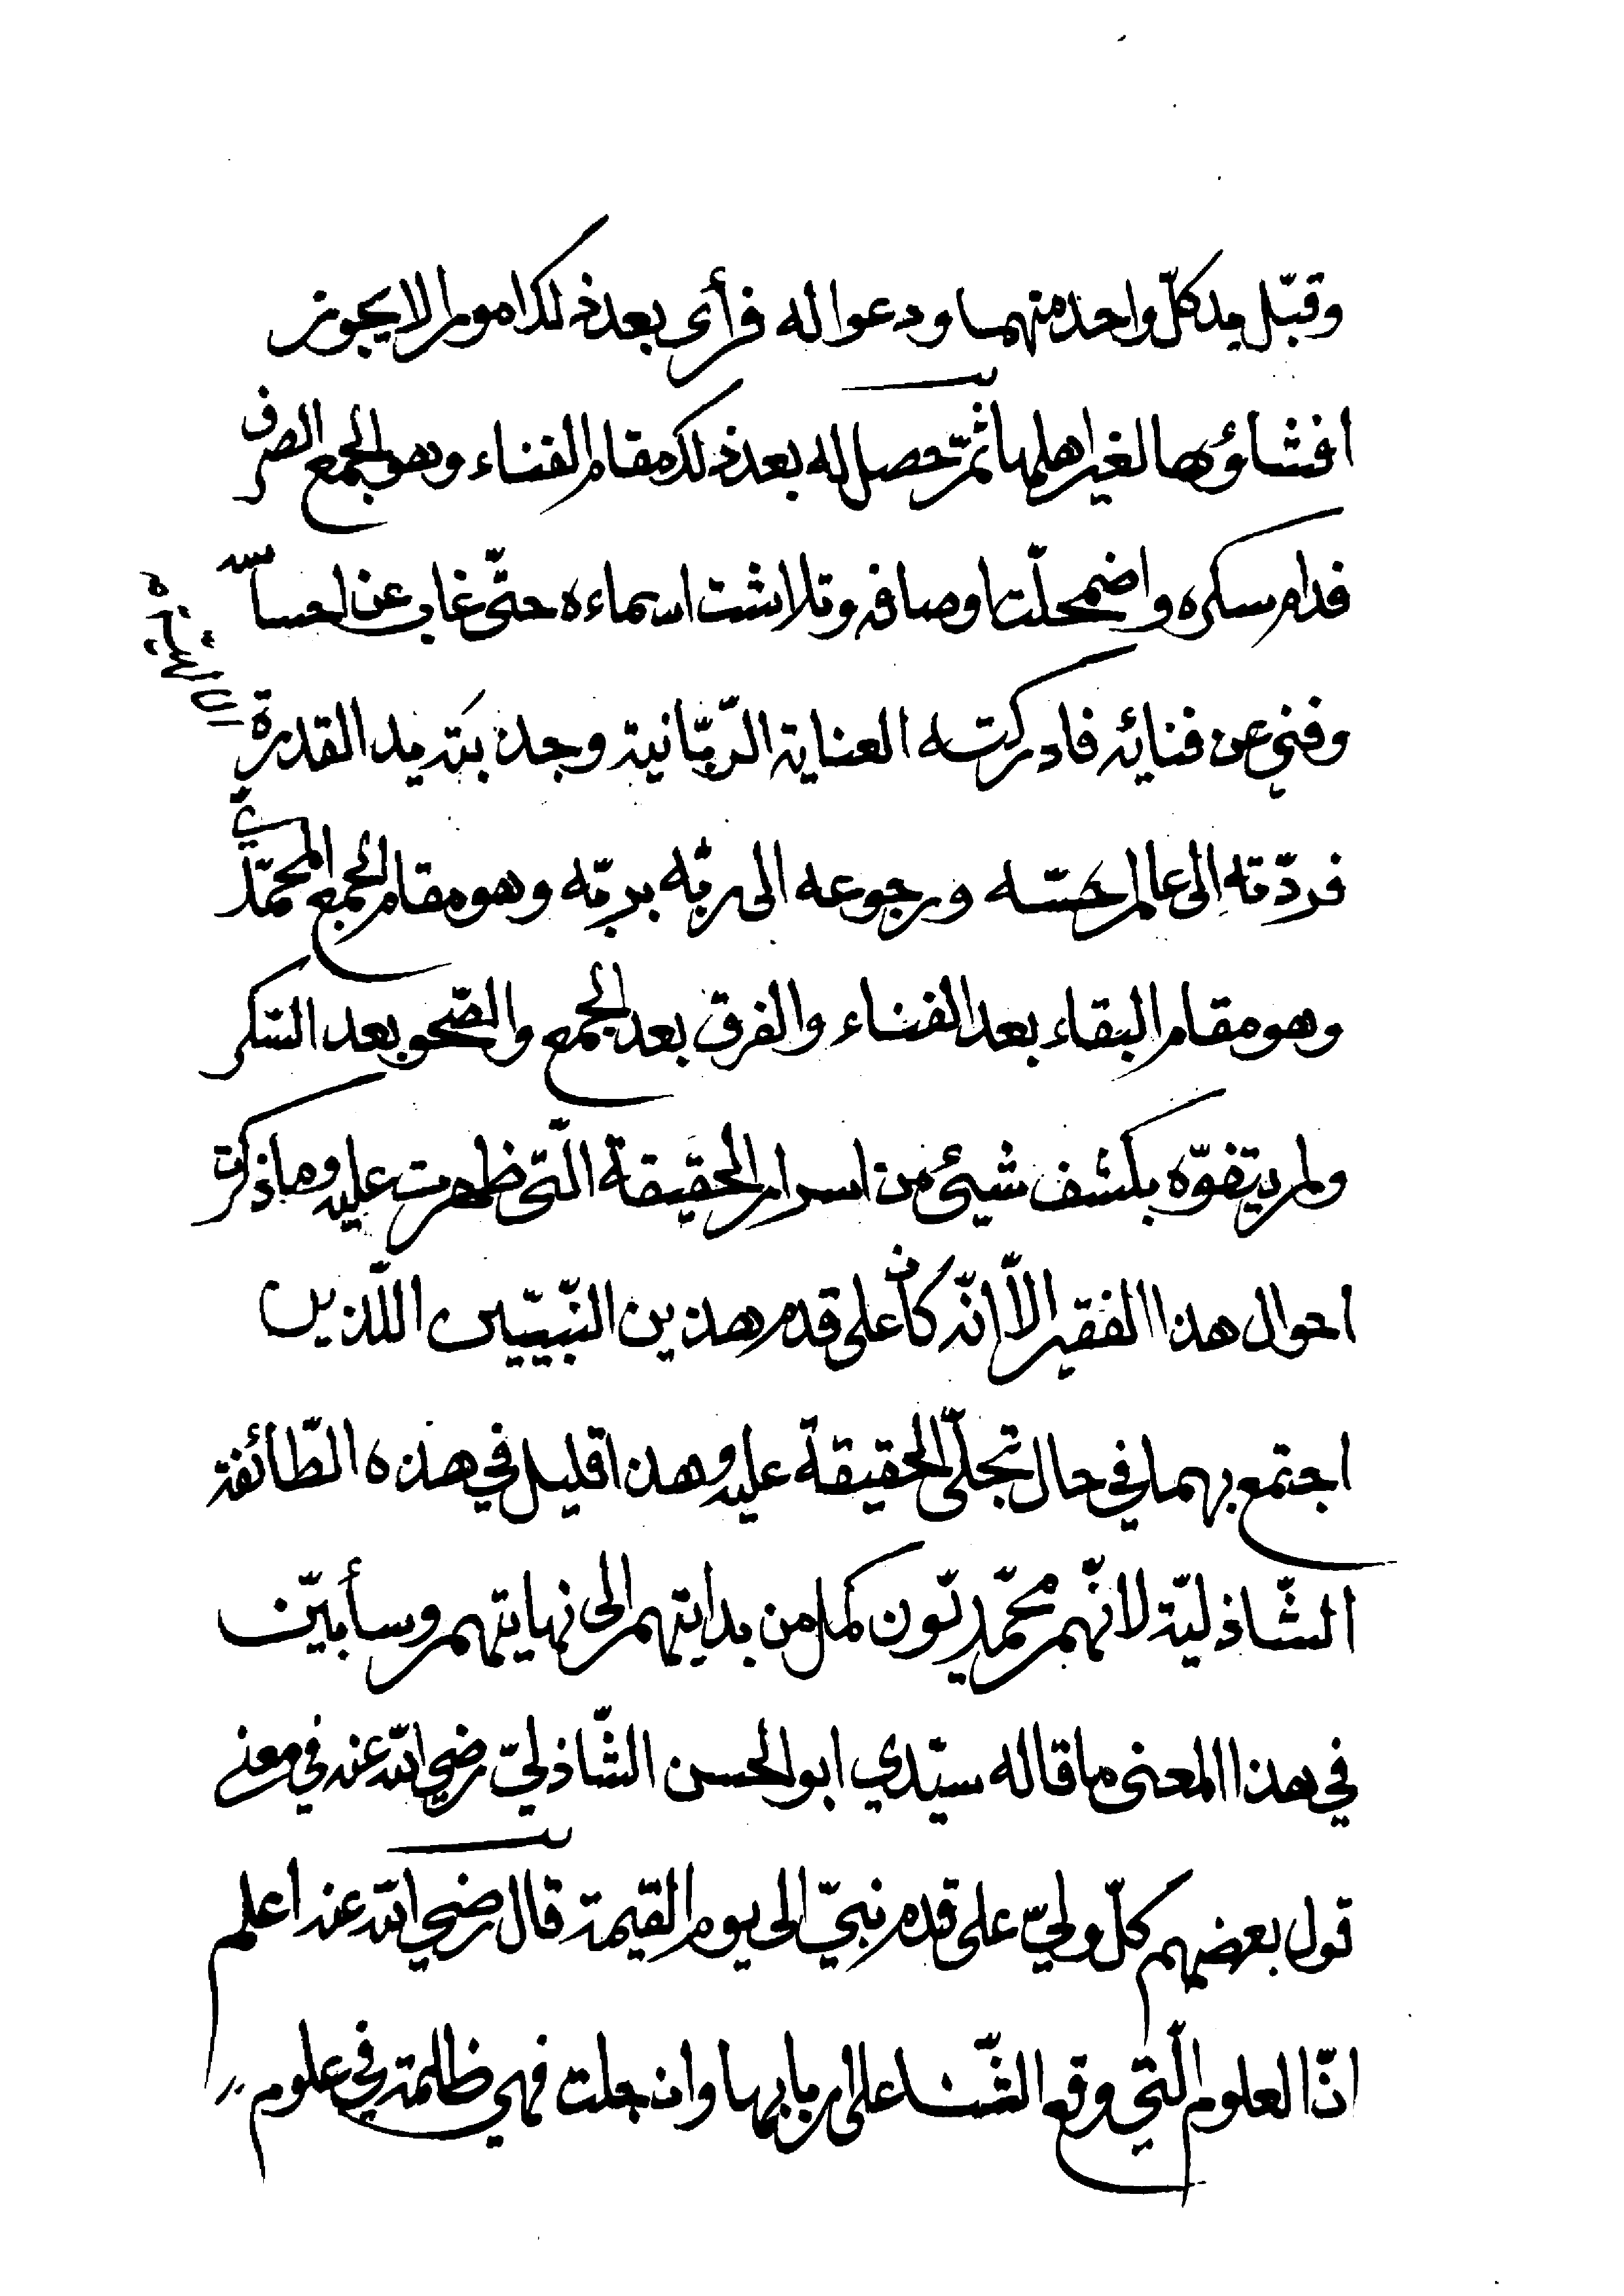 وقبّل يد كلّ واحد منهما ودعوا له فرأى بعد ذلك امورا لا يجوز
افشاؤها لغير اهلها ثمّ حصل له بعد ذلك مقام الفناء وهو الجمع الصرف
فدام سكره واضمحلّت اوصافه وتلاشت اسماءه حتّى غاب عن احساسه
وفني عن فنائه فادركته العناية الرّبّانية وجذبته يد القدرة
فردّته الى عالم حسّه ورجوعه الى ربّه برمّته وهو مقام الجمع المحمّديّ
وهو مقام البقاء بعد الفناء والفرق بعد الجمع والصّحو بعد السّكر
ولم يتفوّه بكشف شيئ من اسرار الحقيقة الّتى ظهرت عليه وما ذكرت
احوال هذا الفقير الاّ انّه كان على قدم هذين النّبيّين اللّذين
اجتمع بهما في حال تجلّى الحقيقة عليه وهذا قليل في هذه الطّائفة
الشّاذليّة لانّهم محمّديّون كمل من بدايتهم الى نهايتهم وسأبيّن
في هذا المعنى ما قاله سيّدي ابو الحسن الشّاذليّ رضي الله عنه في معنى
قول بعضهم كلّ وليّ على قدم نبيّ الى يوم القيمة قال رضي الله عنه اعلم
انّ العلوم الّتي وقع الثّنا على اربابها وان جلت فهي ظلمة في علوم